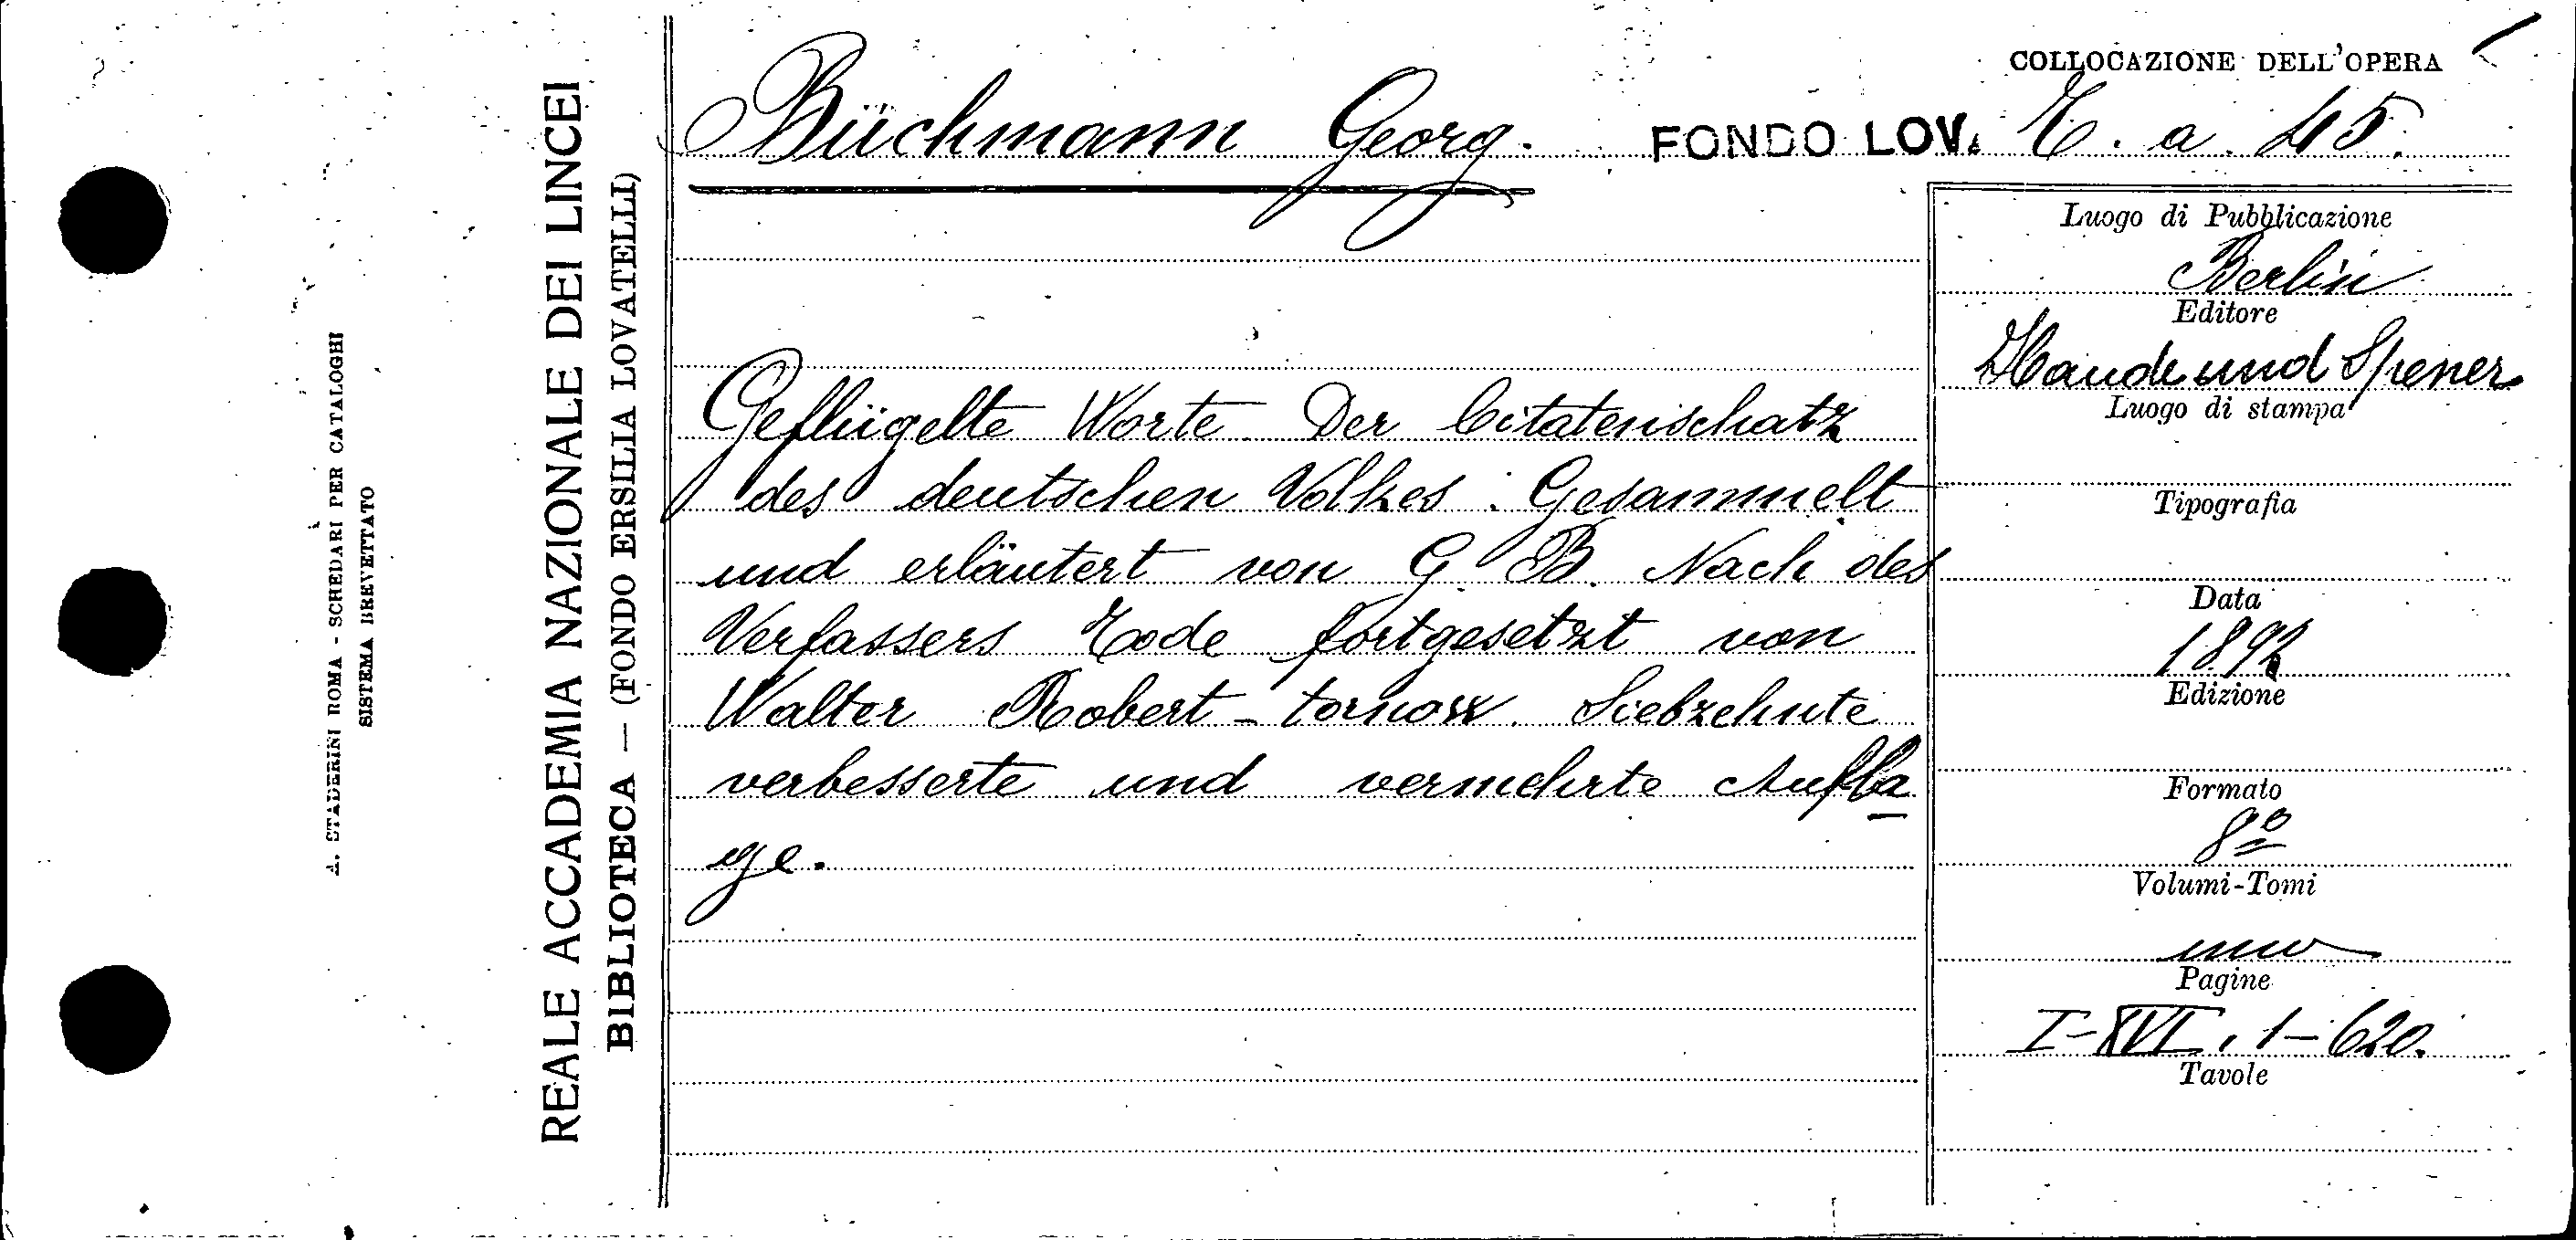 A. STADERINI ROMA - SCHEDARI PER CATALOGHI
SISTEMA BREVETTATO
REALE ACCADEMIA NAZIONALE DEI LINCEI
BIBLIOTECA — (FONDO ERSILIA LOVATELLI)
COLLOCAZIONE DELL'OPERA
Büchmann Georg. FONDO LOV. T. a. 45.
Geflügelte Worte. Der Citatenschatz
des deutschen Volkes. Gesammelt
und erläutert von G. B. Nach des
Verfassers Tode fortgesetzt von
Walter Robert-tornow. Siebzehnte
verbesserte und vermehrte Aufla
ge.
Luogo di Pubblicazione
Berlin
Editore
Haude und Spener
Luogo di stampa
Tipografia
Data
1892
Edizione
Formato
8º
Volumi-Tomi
uno
Pagine
I-XVI, 1-620.
Tavole